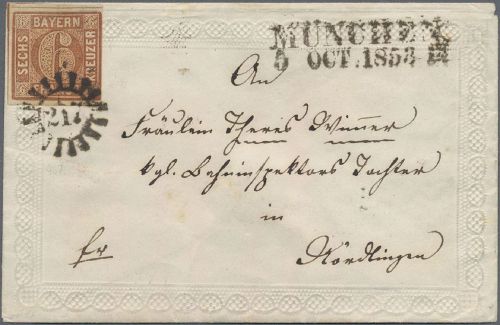 BAYERN
SECHS
6
KREUZER
217
MÜNCHEN
5 OCT. 1853
An
Fräulein Theres Wimmer
kgl. Bahninspektors Tochter
in
fr
Nördlingen